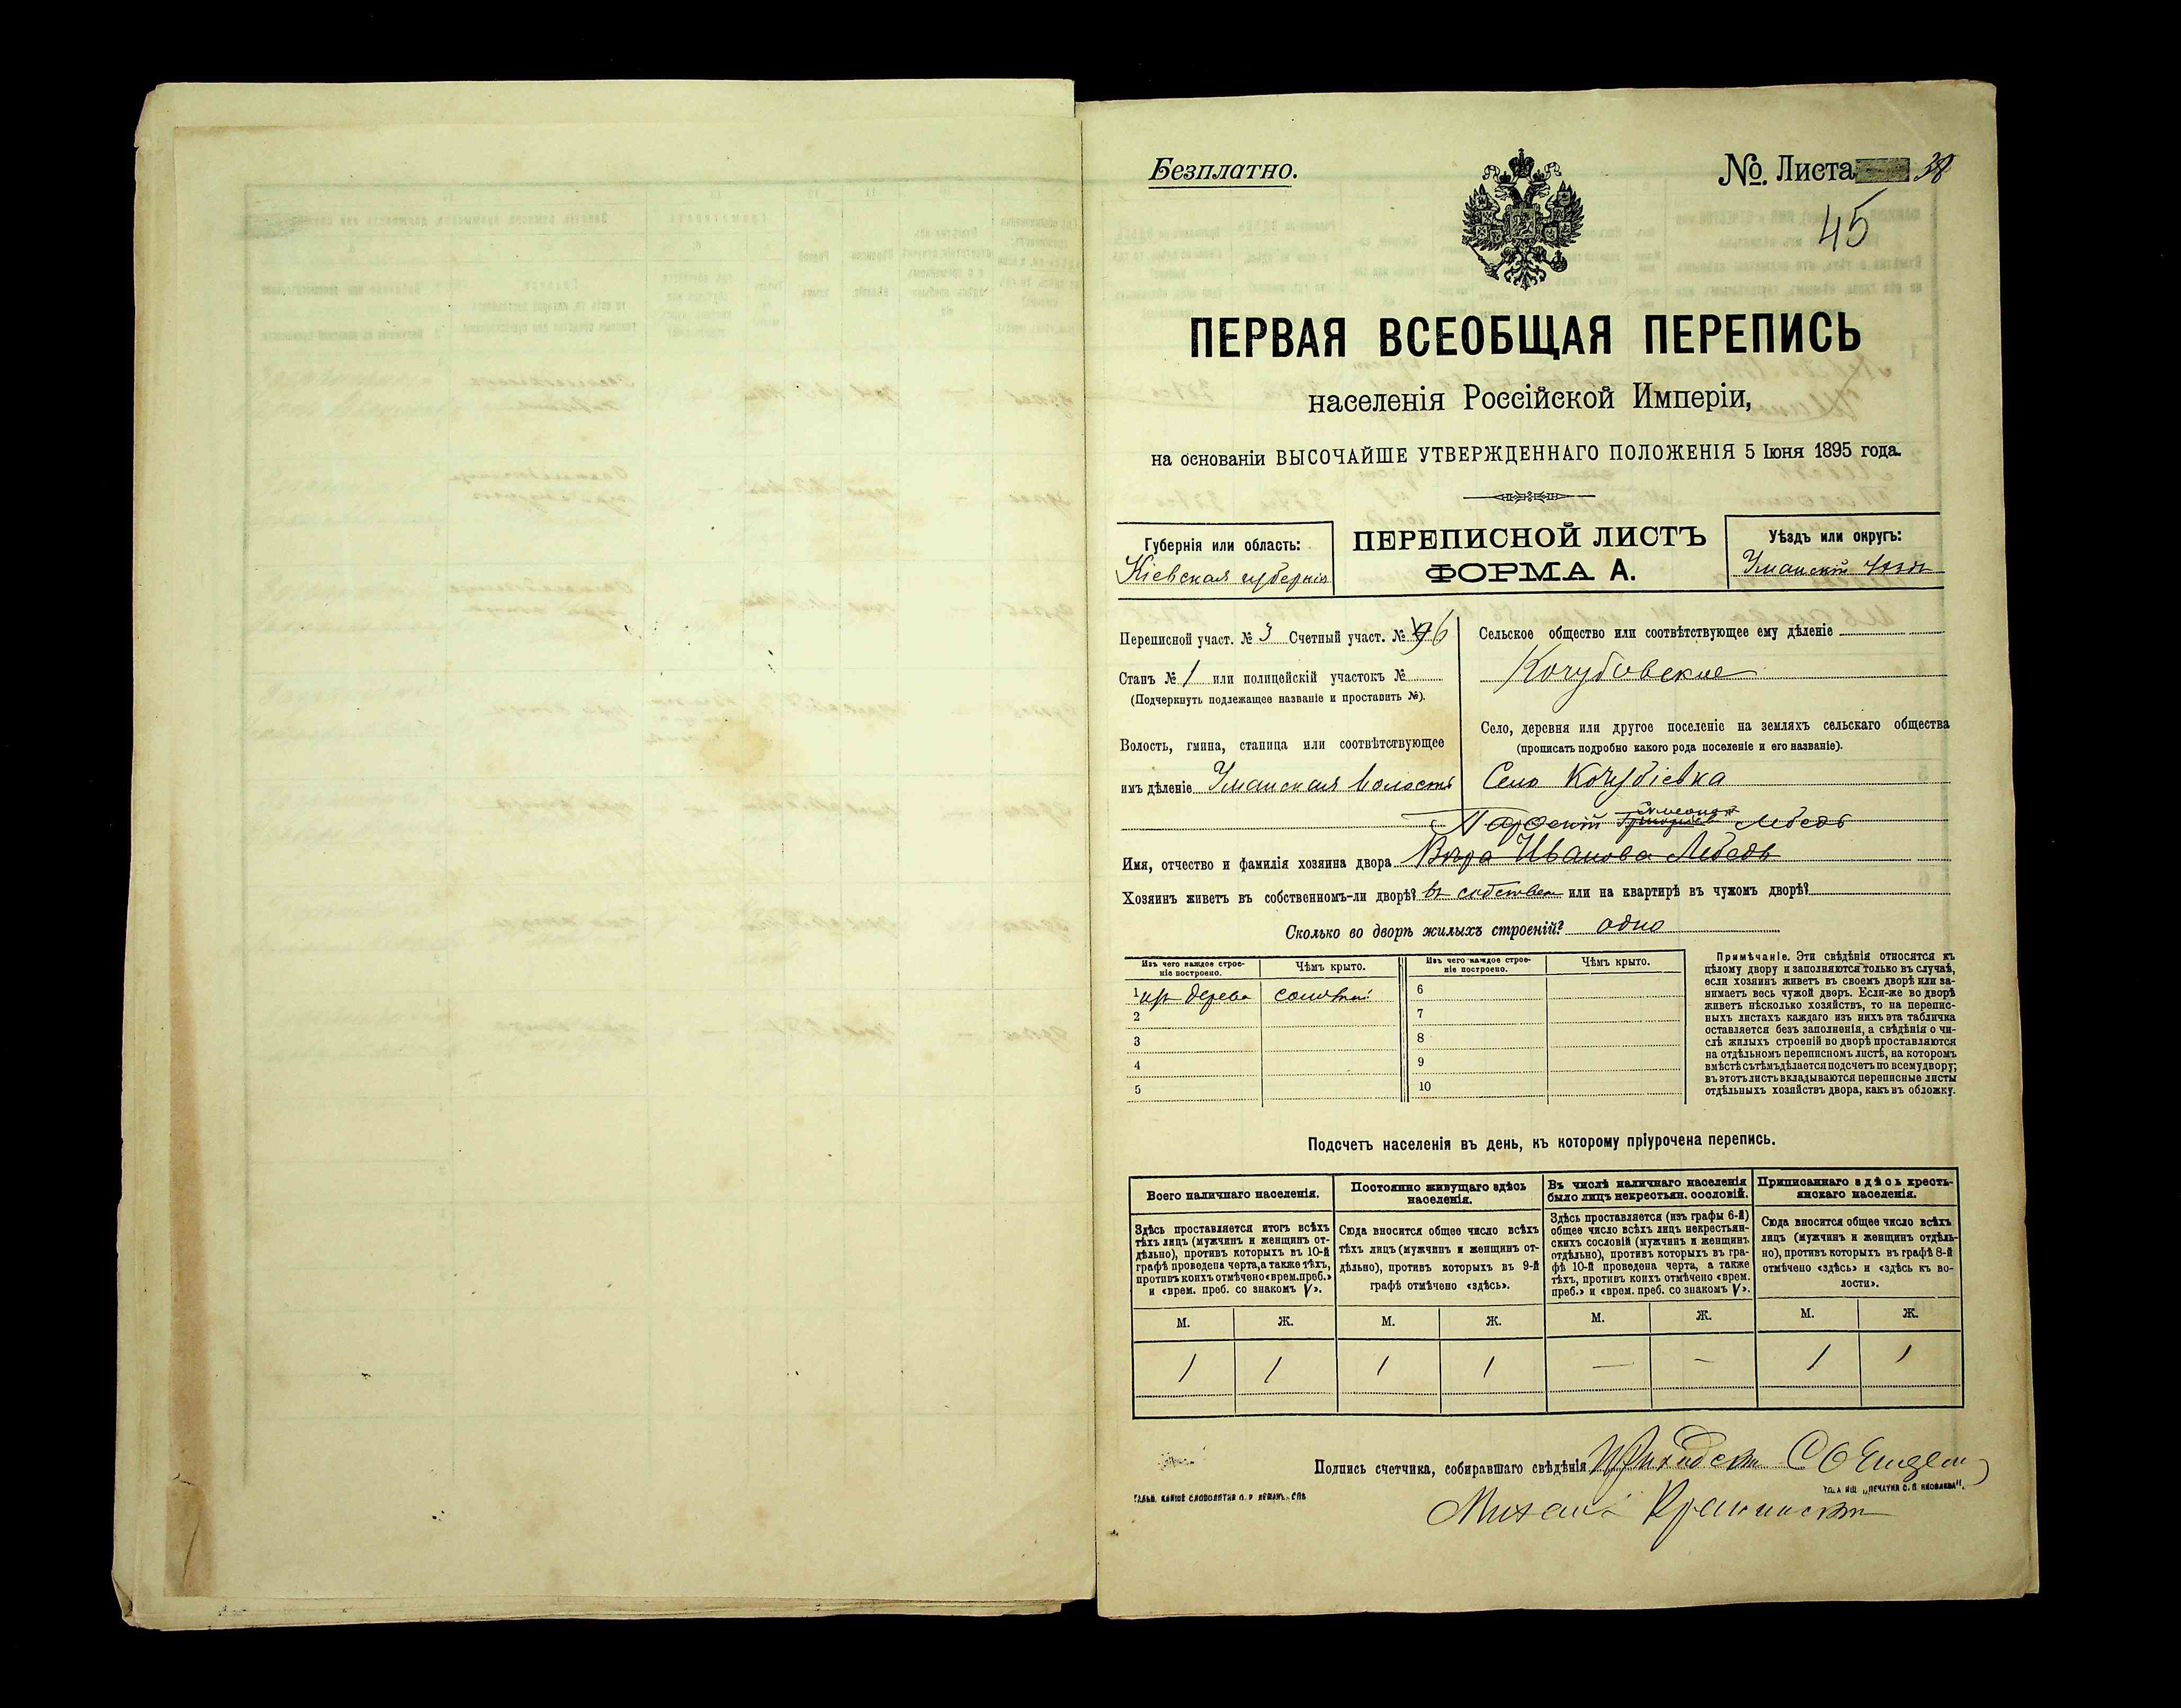 Безплатно.
№ Листа 38
45
ПЕРВАЯ ВСЕОБЩАЯ ПЕРЕПИСЬ
населенія Россійской Имперіи,
на основаніи ВЫСОЧАЙШЕ УТВЕРЖДЕННАГО ПОЛОЖЕНІЯ 5 Іюня 1895 года.
Губернія или область:
Кіевская губернія
ПЕРЕПИСНОЙ ЛИСТЪ
ФОРМА А.
Уѣздъ или округъ:
Уманскій уѣздъ
Переписной участ. № 3 Счетный участ. № 6
Станъ № 1 или полицейскій участокъ №
(Подчеркнуть подлежащее названіе и проставить №).
Волость, гмина, станица или соотвѣтствующее
имъ дѣленіе Уманская волость
Сельское общество или соотвѣтствующее ему дѣленіе
Кочубовское
Село, деревня или другое поселеніе на земляхъ сельскаго общества
(прописать подробно какого рода поселеніе и его названіе).
Село Кочубіевка
Лебедь
Имя, отчество и фамилія хозяина двора Вѣра Иванова Лебедь
Хозяинъ живетъ въ собственномъ-ли дворѣ? въ собствен или на квартирѣ въ чужомъ дворѣ?
Сколько во дворѣ жилыхъ строеній? одно
Изъ чего каждое строе-
ніе построено.
Чѣмъ крыто.
Изъ чего каждое строе-
ніе построено.
Чѣмъ крыто.
1 изъ дерева соломой 6
2 7
3 8
4 9
5 10
Примѣчаніе. Эти свѣдѣнія относятся къ
цѣлому двору и заполняются только въ случаѣ,
если хозяинъ живетъ въ своемъ дворѣ или за-
нимаетъ весь чужой дворъ. Если-же во дворѣ
живетъ нѣсколько хозяйствъ, то на перепис-
ныхъ листахъ каждаго изъ нихъ эта табличка
оставляется безъ заполненія, а свѣдѣнія о чи-
слѣ жилыхъ строеній во дворѣ проставляются
на отдѣльномъ переписномъ листѣ, на которомъ
вмѣстѣ съ тѣмъ дѣлается подсчетъ по всему двору;
въ этотъ листъ вкладываются переписные листы
отдѣльныхъ хозяйствъ двора, какъ въ обложку.
Подсчетъ населенія въ день, къ которому пріурочена перепись.
Всего наличнаго населенія.
Постоянно живущаго здѣсь
населенія.
Въ числѣ наличнаго населенія
было лицъ некрестьян. сословій.
Приписаннаго здѣсь кресть-
янскаго населенія.
Здѣсь проставляется итогъ всѣхъ
тѣхъ лицъ (мужчинъ и женщинъ от-
дѣльно), противъ которыхъ въ 10-й
графѣ проведена черта, а также тѣхъ,
противъ коихъ отмѣчено «врем. преб.»
и «врем. преб. со знакомъ V».
Сюда вносится общее число всѣхъ
тѣхъ лицъ (мужчинъ и женщинъ от-
дѣльно), противъ которыхъ въ 9-й
графѣ отмѣчено «здѣсь».
Здѣсь проставляется (изъ графы 6-й)
общее число всѣхъ лицъ некрестьян-
скихъ сословій (мужчинъ и женщинъ
отдѣльно), противъ которыхъ въ гра-
фѣ 10-й проведена черта, а также
тѣхъ, противъ коихъ отмѣчено «врем.
преб.» и «врем. преб. со знакомъ V».
Сюда вносится общее число всѣхъ
лицъ (мужчинъ и женщинъ отдѣль-
но), противъ которыхъ въ графѣ 8-й
отмѣчено «здѣсь» и «здѣсь къ во-
лости».
М. Ж. М. Ж. М. Ж. М. Ж.
1 1 1 1 — — 1 1
Подпись счетчика, собиравшаго свѣдѣнія
Михаилъ